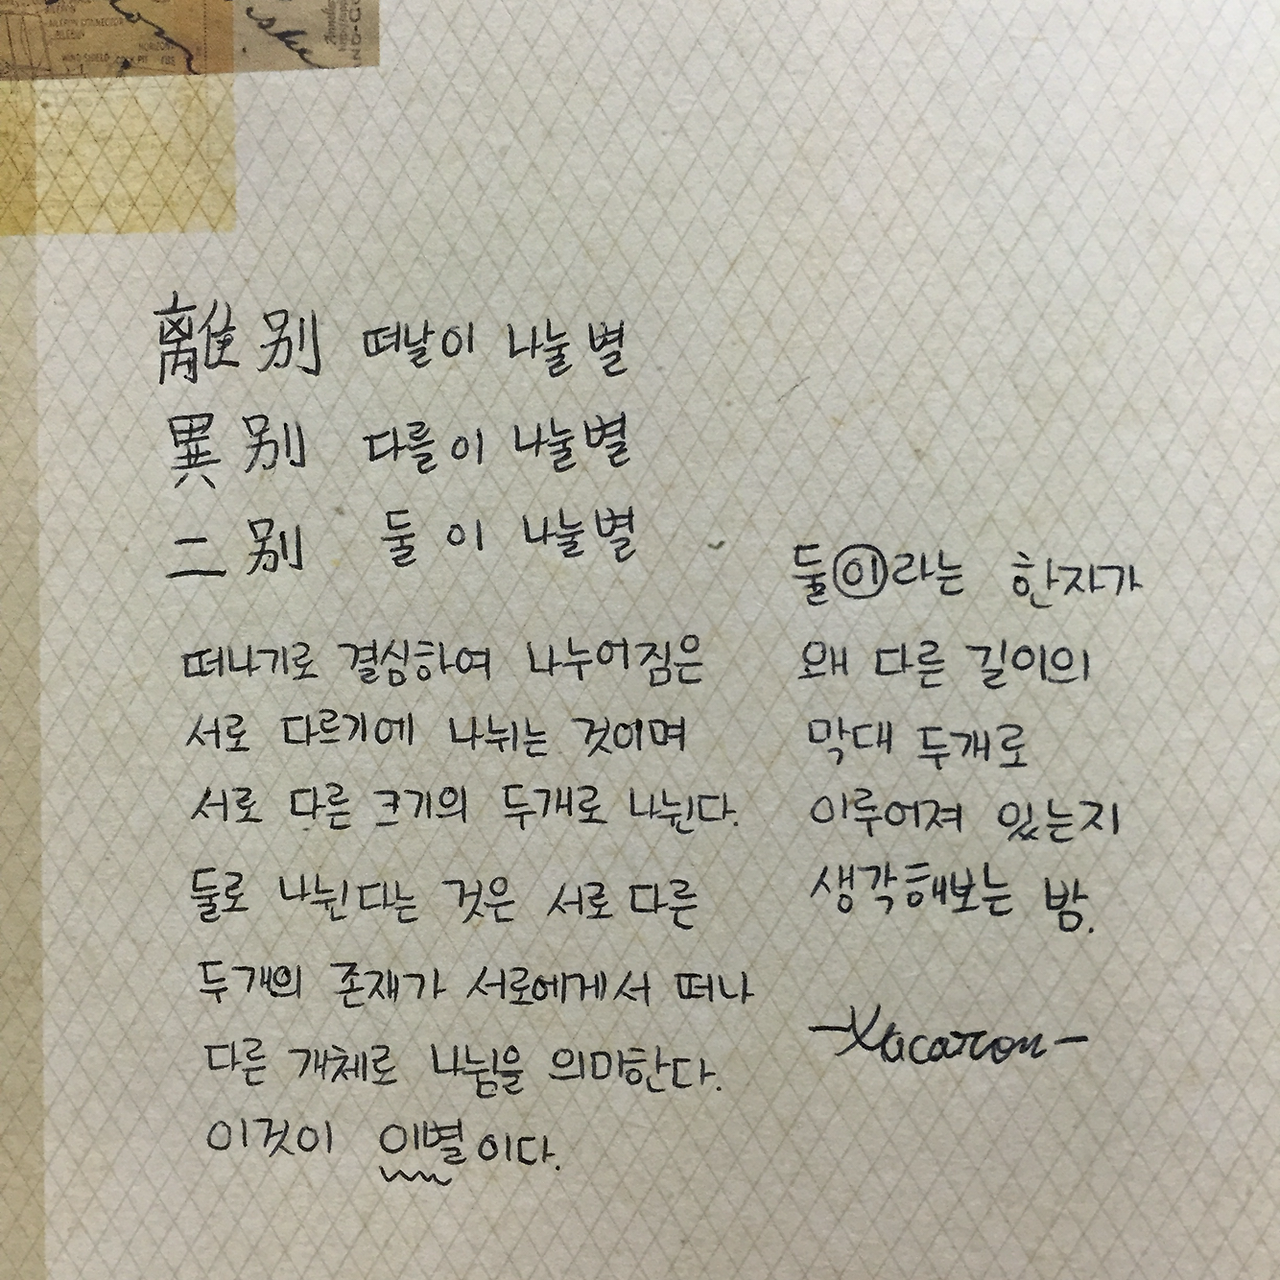 AILERON CONNECTOR
HORIZON
WIND SHIELD
離別 떠날이 나눌별
異別 다를이 나눌별
二別 둘 이 나눌별
떠나기로 결심하여 나누어짐은
서로 다르기에 나뉘는 것이며
서로 다른 크기의 두개로 나뉜다.
둘로 나뉜다는 것은 서로 다른
두개의 존재가 서로에게서 떠나
다른 개체로 나뉨을 의미한다.
이것이 이별이다.
둘이라는 한자가
왜 다른 길이의
막대 두개로
이루어져 있는지
생각해보는 밤.